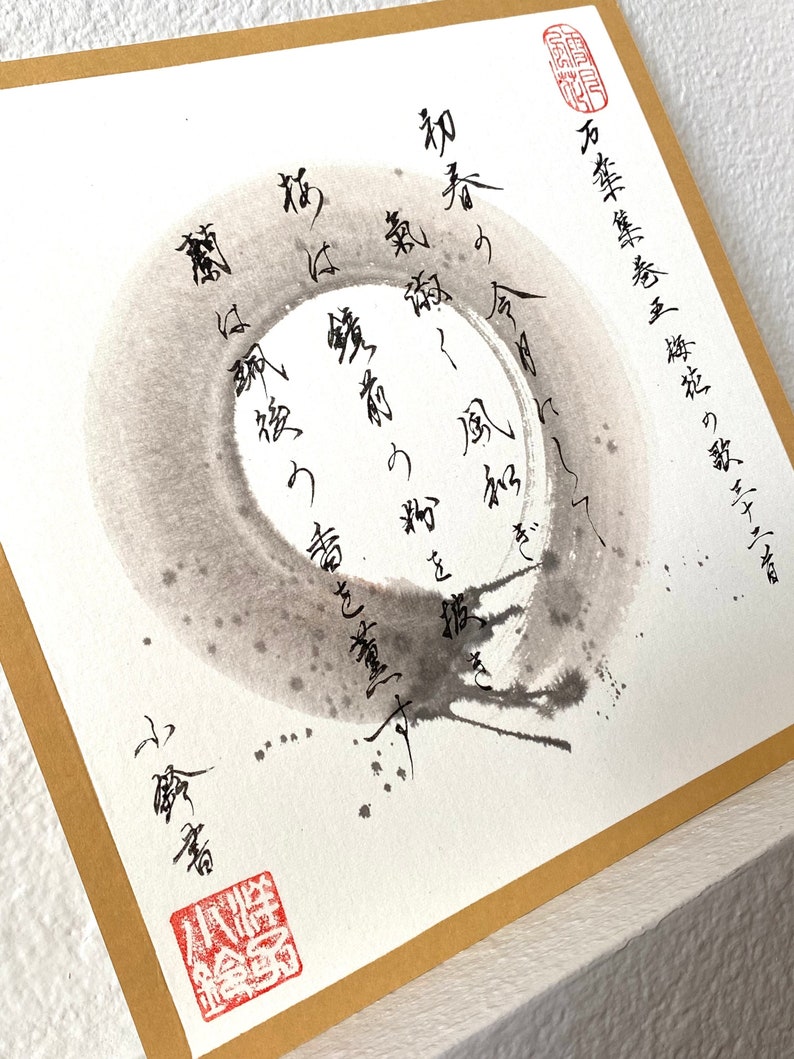 雪月風花
万葉集巻五 梅花の歌三十二首
初春の令月にして
氣淑く風和ぎ
梅は鏡前の粉を披き
蘭は珮後の香を薫す
小鈴書
小鈴